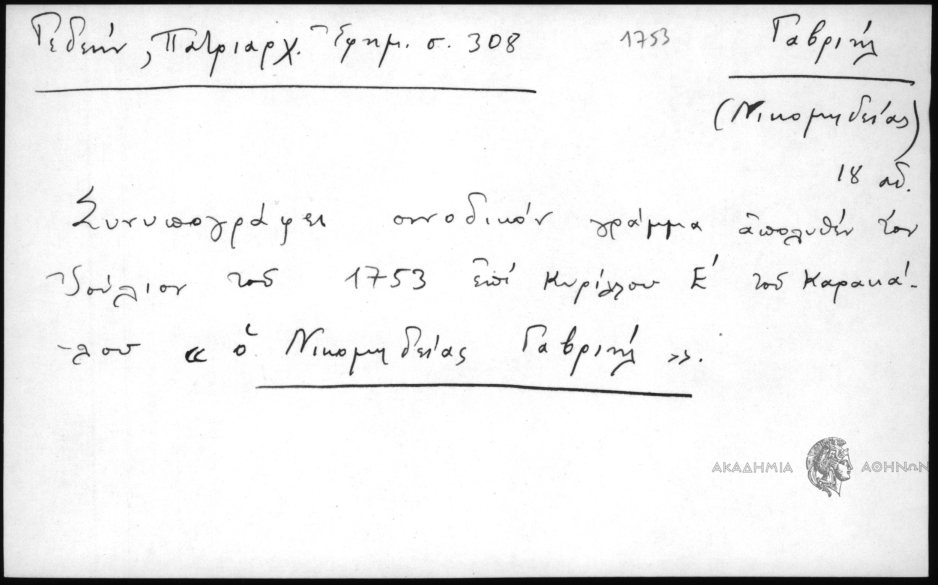 Γεδεών, Πατριαρχ. Ἐφημ. σ. 308 1753 Γαβριήλ
(Νικομηδείας)
18 αἰ.
Συνυπογράφει συνοδικόν γράμμα ἀπολυθέν τόν
Ἰούλιον τοῦ 1753 ἐπί Κυρίλλου Ε' τοῦ Καρακά-
-λου « ὁ Νικομηδείας Γαβριήλ ».
ΑΚΑΔΗΜΙΑ ΑΘΗΝΩΝ